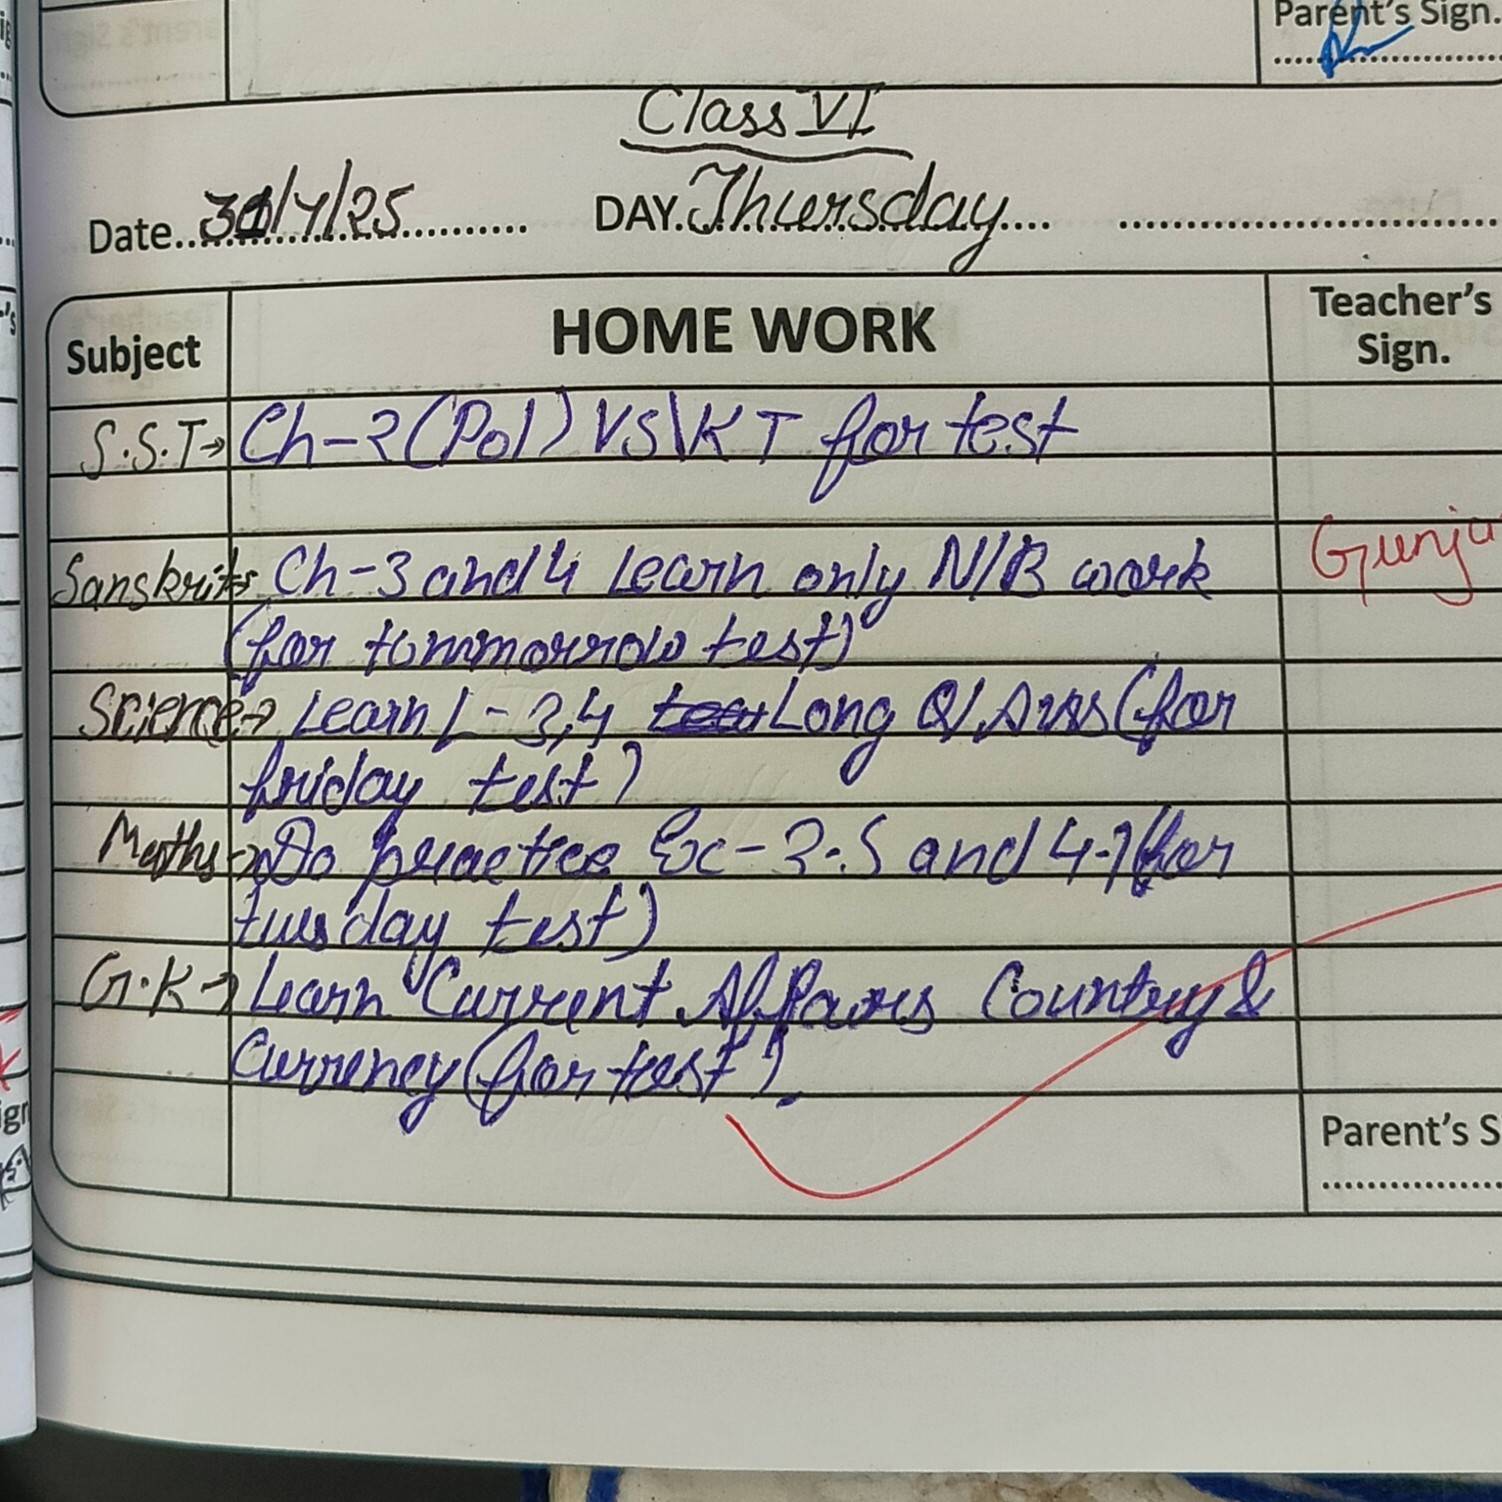 Parent's Sign.
Class VI
Date 31/7/25 DAY Thursday
Subject HOME WORK Teacher's Sign.
S.S.T→ Ch-2 (Pol) VS\KT for test
Sanskrit→ Ch-3 and 4 Learn only N/B work
(for tommorrow test)
Science→ Learn L-3,4 Long Q/Ans (for
friday test)
Maths→ Do practice Ex-3.5 and 4.1 (for
tuesday test)
G.K→ Learn Current Affairs Country &
Currency (for test).
Gunju
Parent's S